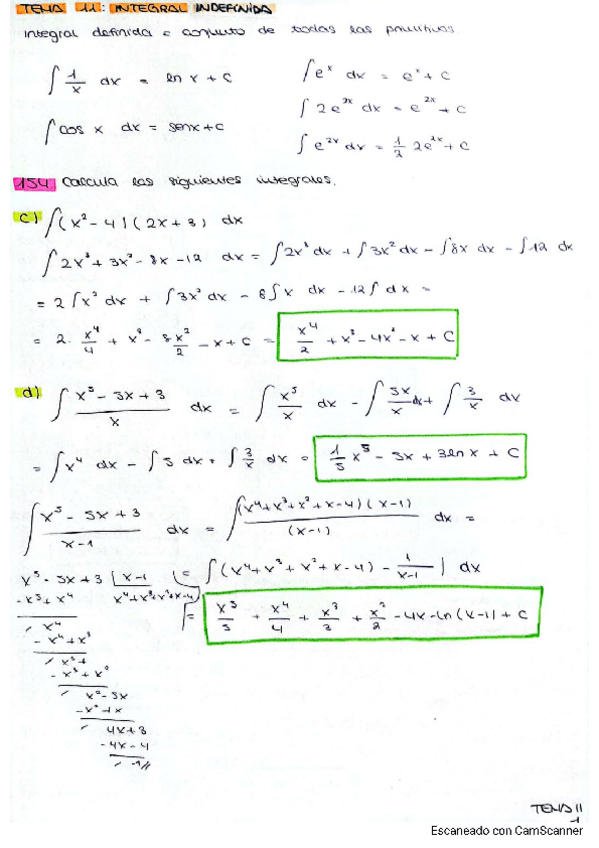 TEMA 11: INTEGRAL INDEFINIDA
Integral definida = conjunto de todas las primitivas.
∫ 1/x dx = ln x + C
∫ e^x dx = e^x + C
∫ 2e^2x dx = e^2x + C
∫ cos x dx = sen x + C
∫ e^2x dx = 1/2 2e^2x + C
154 Calcula las siguientes integrales.
c) ∫ (x² - 4)(2x + 3) dx
∫ 2x³ + 3x² - 8x - 12 dx = ∫ 2x³ dx + ∫ 3x² dx - ∫ 8x dx - ∫ 12 dx
= 2 ∫ x³ dx + ∫ 3x² dx - 8 ∫ x dx - 12 ∫ dx =
= 2 · x⁴/4 + x³ - 8 x²/2 - x + C = x⁴/2 + x³ - 4x² - x + C
d) ∫ (x⁵ - 3x + 3)/x dx = ∫ x⁵/x dx - ∫ 3x/x dx + ∫ 3/x dx
= ∫ x⁴ dx - ∫ 3 dx + ∫ 3/x dx = 1/5 x⁵ - 3x + 3 ln x + C
∫ (x⁵ - 5x + 3)/(x - 1) dx = ∫ (x⁴ + x³ + x² + x - 4)(x - 1)/(x - 1) dx =
= ∫ (x⁴ + x³ + x² + x - 4) - 1/(x-1) | dx
x⁵ - 5x + 3 | x - 1
- x⁵ + x⁴ x⁴ + x³ + x² + x - 4
= x⁵/5 + x⁴/4 + x³/3 + x²/2 - 4x - ln (x - 1) + C
x⁴
- x⁴ + x³
x³ +
- x³ + x²
x² - 5x
- x² + x
4x + 3
- 4x - 4
- 1 //
TEMA 11
1
Escaneado con CamScanner